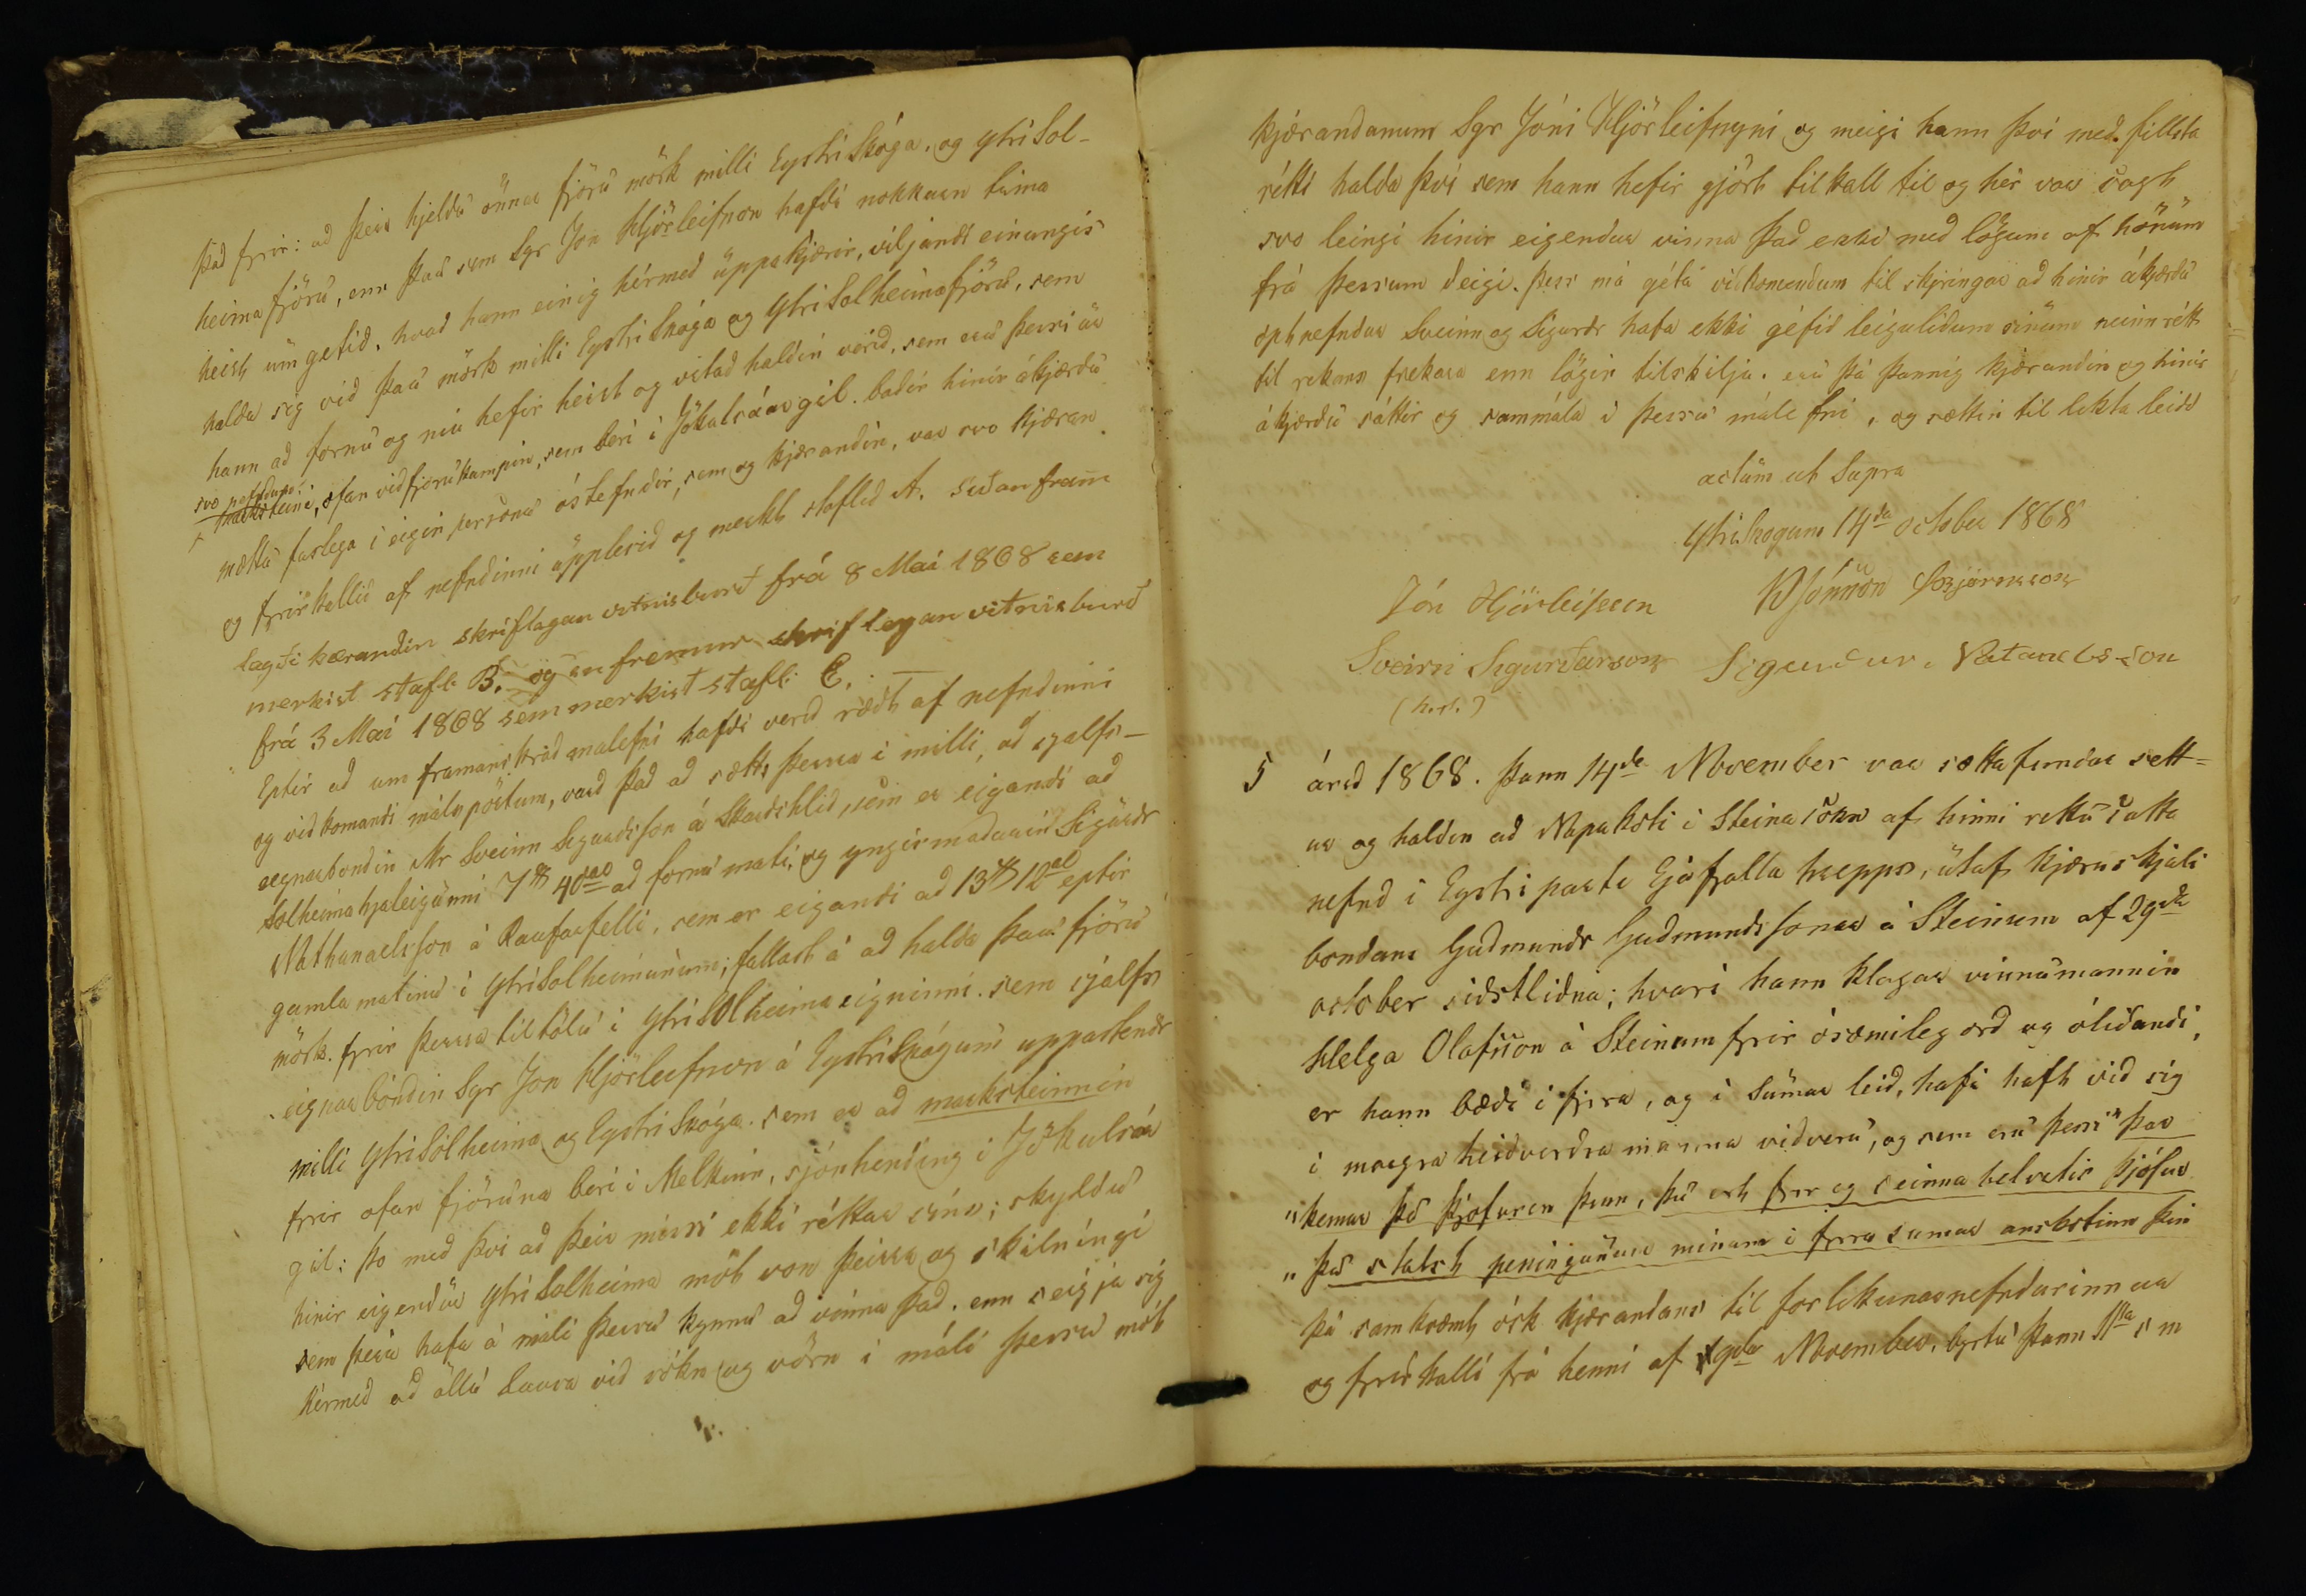 það fyrir: að þeir hjeldu önnur fjöru mörk milli Eystri Skóga, og Ytri Sol-
heima fjöru, enn þau sem Sgr Jon Hjörleifsson hafdi nokkurn tima
heirt um getið, hvað hann einig hérmeð uppákjærir, viljandi einungis
halda sig við þau mörk milli Eystri Skóga og Ytri Solheimafjöru, sem
hann að fornu og niu hefir heirt og vitað haldin verið, sem eru þessi úr
svo nefndum
marksteini, ofan við fjörukampin, sem beri i Jökulsáargil. badir hinir ákjærðu
mættu furlega i eigin persónu óstefndir, sem og kjærandin, var svo kjæran
og fyrirkallið af nefndinni upplesið og merkt staflið A. siðan fram
lagði kærandin skriflagan vitnisburð frá 8 Mai 1868 sem
merkist stafl. B. og en fremur skriflegan vitnisburð
frá 3 Mai 1868 sem merkist stafl: C.
Eptir að um framanskrád malefni hafdi verið rædt af nefndinni
og viðkomandi máls pörtum, varð það að sætt þessra i milli, að sjalfs-
eignarbondin Mr Sveinn Sigurdsson á Skardshlid, sem er eigandi að
Solheimahjaleigunni 7 hd 40 al að fornu mati, og yngismadurin Sigurdr
Nathanaelsson á Raufarfelli, sem er eigandi að 13 hd 12 al eptir
gamla matinu i Ytri Solheimunum; fallast á að halda þau fjöru
mörk. fyrir þessra tiltölu i Ytri Solheima eigninni. sem sjalfs
eignarbóndin Sgr Jon Hjörleifsson á Eystri Skógum uppástendr
milli Ytri Sólheima og Eystri Skóga. sem er að marksteinnin
fyrir ofan fjöruna beri i Melkinn, sjónhending i Jökulsár
gil; þo med þvi að þeir missi ekki réttar síns; skyldu
hinir eigendur Ytri Solheima mót von þeirra og skilningi
sem þeir hafa á máli þessu kynnu að vinna það. enn seigja sig
hérmeð að öllu lausa við sókn og vörn i máli þessu mót
kjærandanum Sgr Jóni Hjörleifssyni og meigi hann þvi með fillsta
rétti halda þvi sem hann hefir gjört tilkall til og hér var sagt
svo leingi hinir eigendur vinna það ekki með lögum af hönum
frá þessum deigi. þess má géta viðkomendum til skyringar að hinir ákjærðu
optnefndur Sveinn og Sigurdr hafa ekki géfið leiguliðum sinum neinn rétt
til rekans frekara enn lögin tilskilja. eru þá þannig kjærandin og hinir
ákjærðu sáttir og sammála i þessu máli fni, og sættin til lykta leidd
actum ut supra
Ytri Skogum 14da october 1868
Jón Hjörleifsson Kr Jónsson Bjørnsson
Sveirn Sigurdarson Sigurdur Natanelsson
(h.s.)
5 árið 1868. þann 14da November var sættafundur sett-
ur og haldin að Nupakoti i Steina sókn af hinni réttu sátta
nefnd i Eystri parti Ejafjalla hrepps, útaf kjæruskjali
bondans Gudmundr Gudmundssonar á Steinum af 29da
october siðstliðna; hvari hann klagar vinnumannin
Helga Olafsson á Steinum fyrir ósæmileg orð og óliðandi,
er hann bæði i fyrra, og i sumar leið, hafi haft við sig
i margra heidverdra manna viðveru, og sem eru þessi "þar
"kemur þu þjofuren þinn, þu ert fyr og seinna helvetis þjófur
"þu stalst peningunum minum i fyrra sumar anskotinn þin
þá samkvæmt ósk kjærandans til forlikunarnefndarinnar
og fyrirkalli frá henni af 9da November, byrtu þann 11ta s m